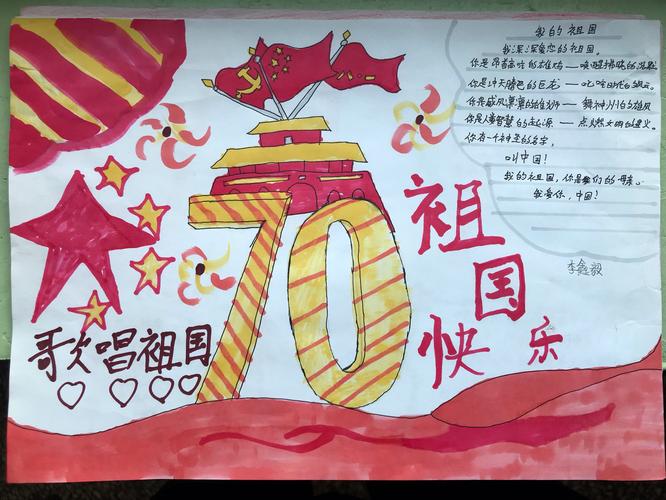 我的祖国
我深深爱您的祖国,
你是昂首高吭的雄鸡——唤醒拂晓的沉默
你是冲天腾飞的巨龙——叱咤时代的风云。
你是威风凛凛的雄狮——舞神州的雄风
你是人类智慧的起源——点燃文明的星火。
你有一个神圣的名字,
叫中国!
我的祖国,你是我们的母亲。
我爱你,中国!
李鑫毅
70
祖国
快乐
歌唱祖国